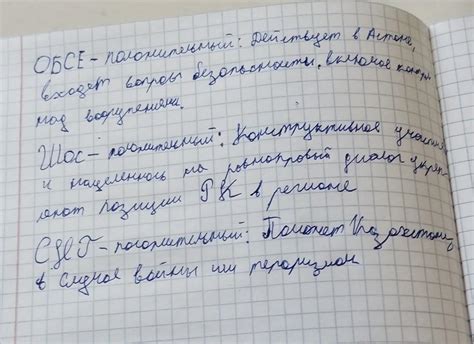 ОБСЕ – положительный: Действует в Астане,
входят вопросы безопасности, включая контроль
над вооружением.
ШОС – положительный: Конструктивное участие
и нацеленность на равноправый диалог укреп-
ляют позиции РК в регионе
– положительный: Поможет Казахстану
в случае войны или терроризма